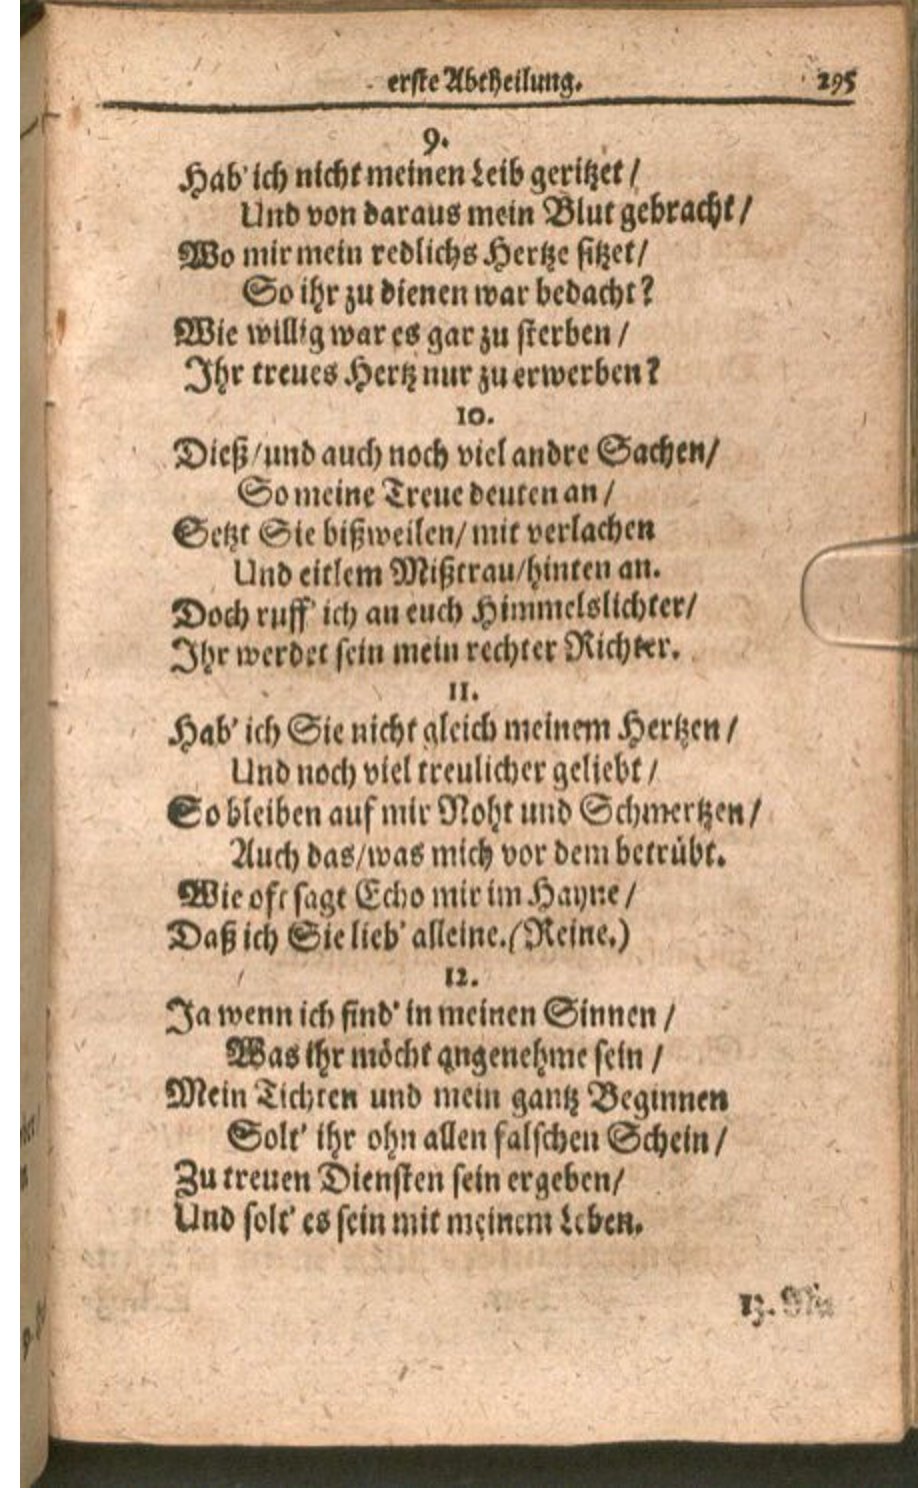 erste Abtheilung. 295
9.
Hab' ich nicht meinen Leib geritzet /
Und von daraus mein Blut gebracht /
Wo mir mein redlichs Hertze sitzet /
So ihr zu dienen war bedacht?
Wie willig war es gar zu sterben /
Ihr treues Hertz nur zu erwerben?
10.
Dieß / und auch noch viel andre Sachen /
So meine Treue deuten an /
Setzt Sie bißweilen / mit verlachen
Und eitlem Mißtrau / hinten an.
Doch ruff' ich an euch Himmelslichter /
Ihr werdet sein mein rechter Richter.
11.
Hab' ich Sie nicht gleich meinem Hertzen /
Und noch viel treulicher geliebt /
So bleiben auf mir Noht und Schmertzen /
Auch das / was mich vor dem betrübt.
Wie oft sagt Echo mir im Hayne /
Daß ich Sie lieb' alleine. (Reine.)
12.
Ja wenn ich find' in meinen Sinnen /
Was ihr möcht angenehme sein /
Mein Tichten und mein gantz Beginnen
Solt' ihr ohn allen falschen Schein /
Zu treuen Diensten sein ergeben /
Und solt' es sein mit meinem Leben.
13.